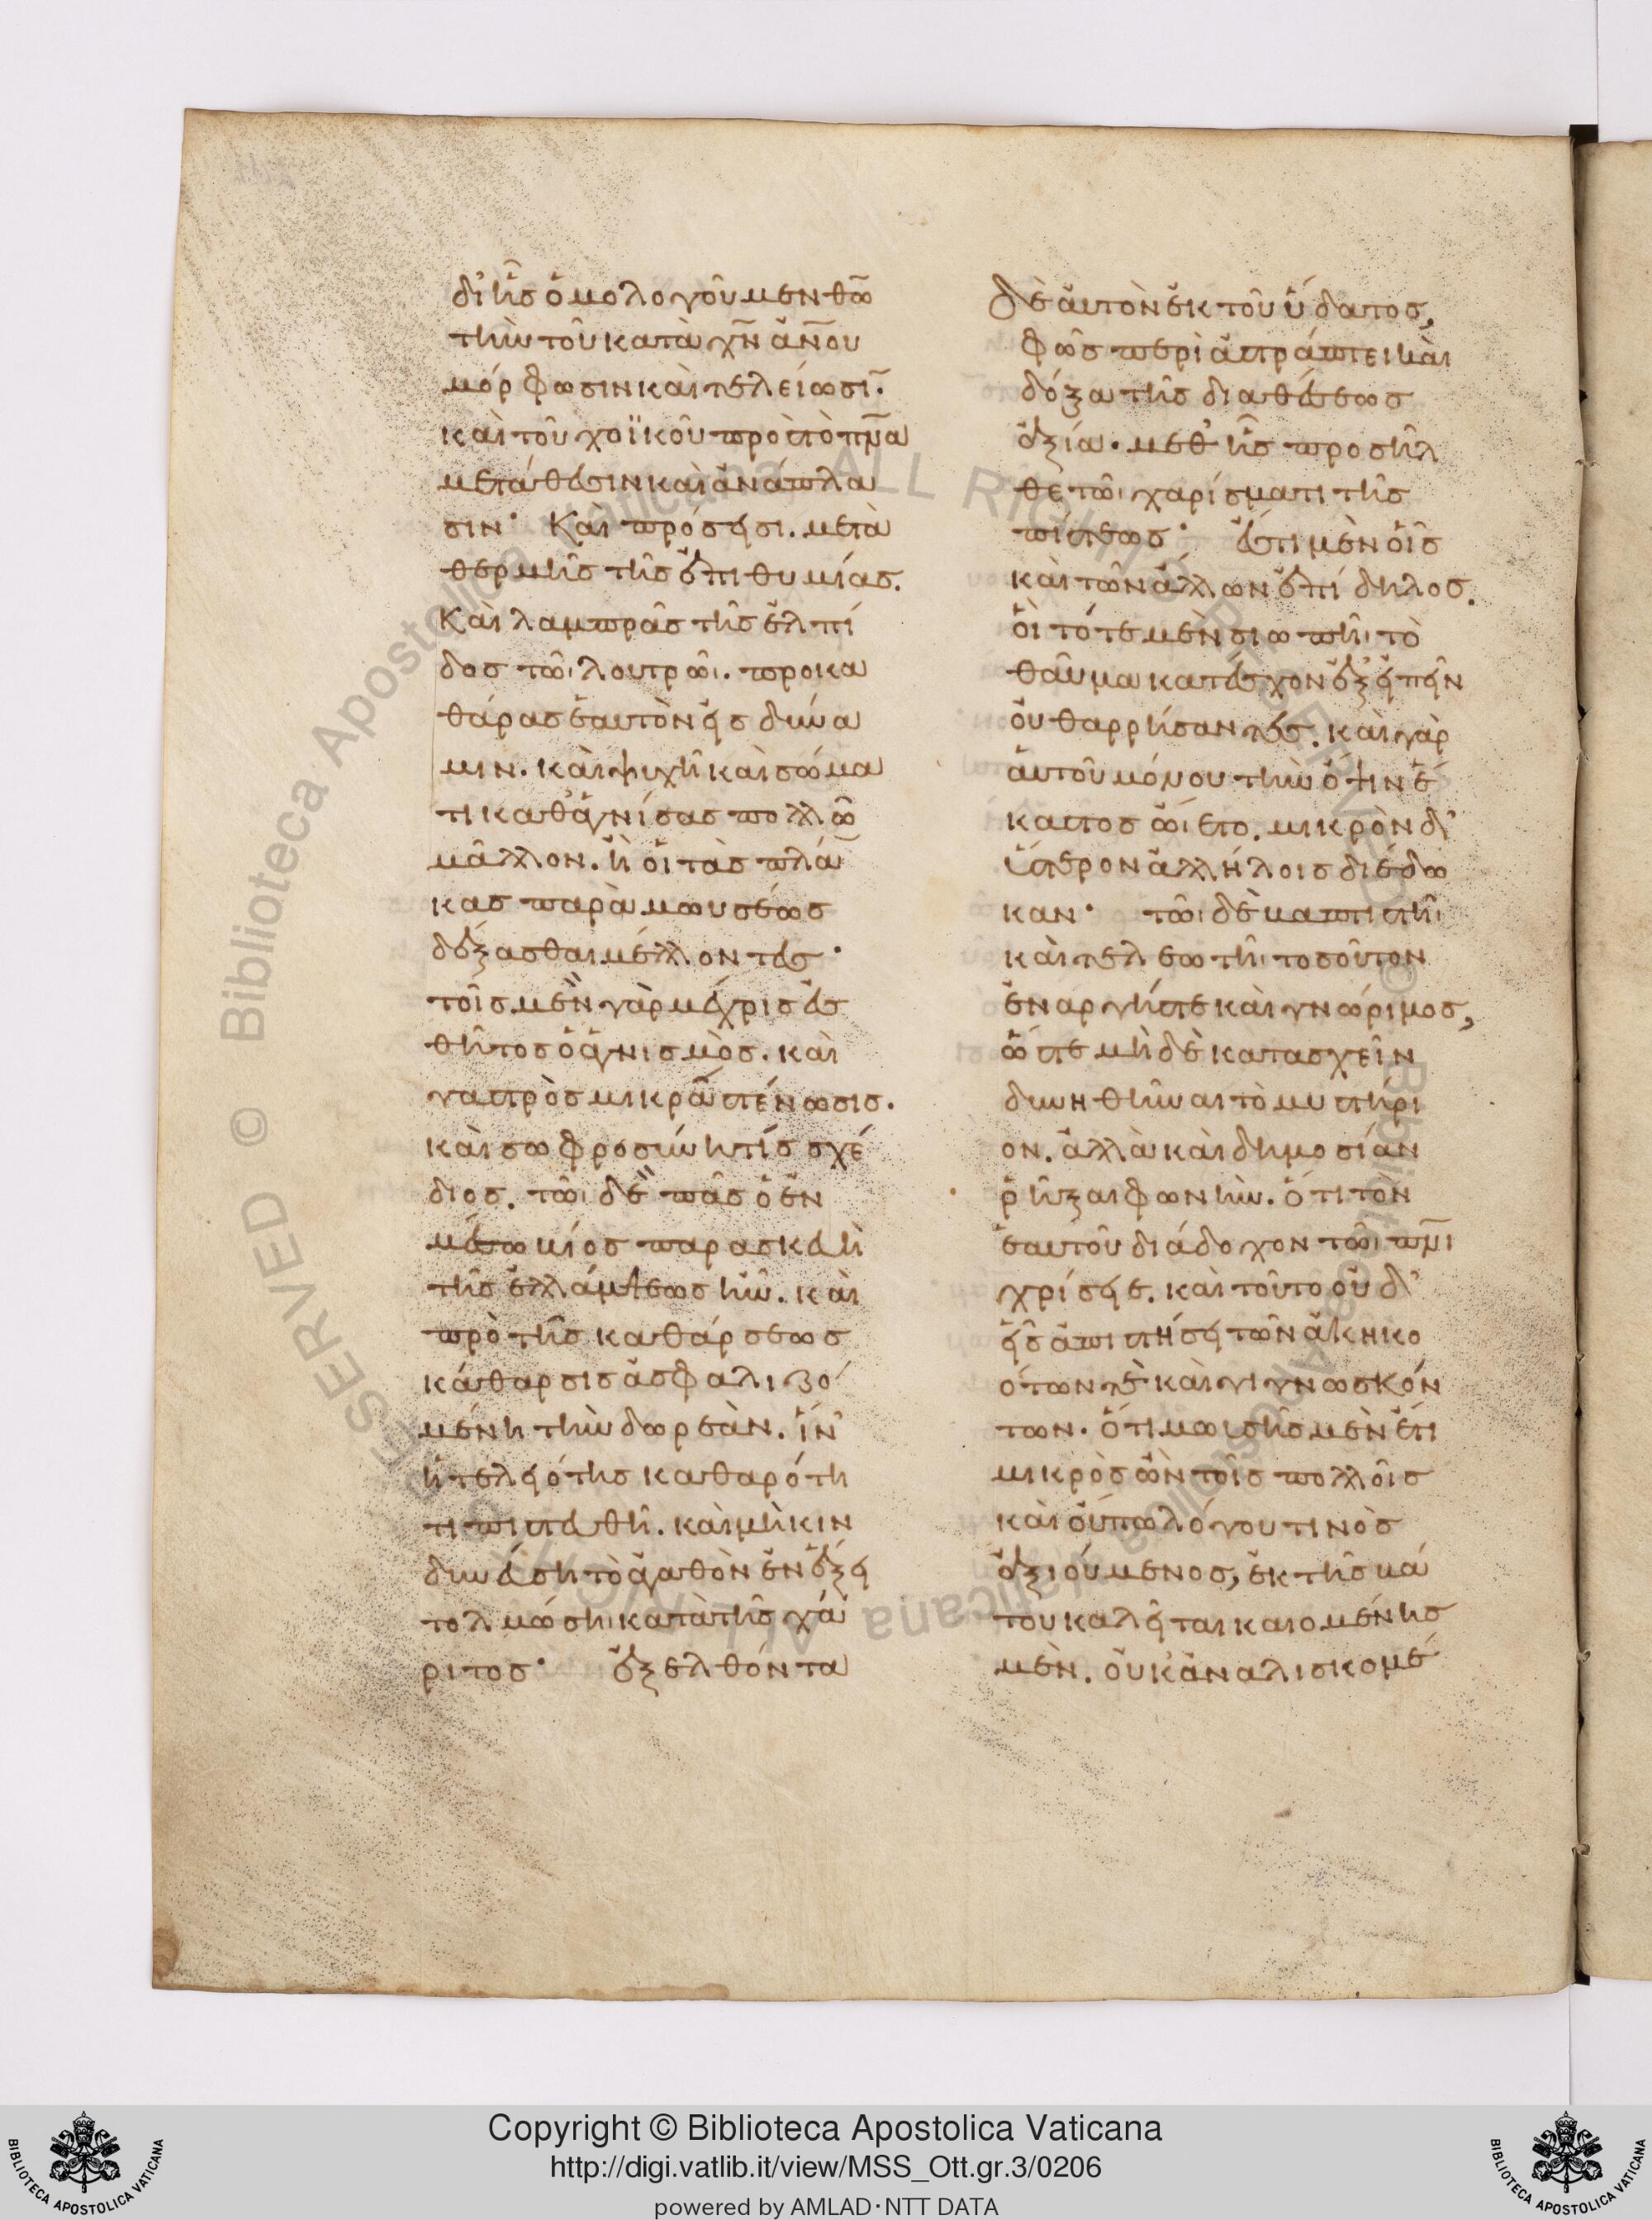 δι' ἧς ὁμολογοῦμεν θῶ
τὴν τοῦ κατὰ χν ανου
μόρφωσιν καὶ τελείωσι.
καὶ τοῦ χοϊκοῦ πρὸς τὸ πνα
μετάθεσιν καὶ ἀνάπλα
σιν· Καὶ πρόσεισι. μετὰ
θερμῆς τῆς ἐπιθυμίας.
Καὶ λαμπρᾶς τῆς ἐλπί
δος τῶι λουτρῶι. προκα
θάρας ἑαυτὸν εἰς δύνα
μιν. καὶ ψυχῆ καὶ σώμα
τι καθαγνίσας πολλῶ
μᾶλλον. ἢ οἱ τὰς πλά
κας παρὰ μωυσέως
δέξασθαι μέλλοντες·
τοῖς μὲν γὰρ μέχρις ἐσ
θῆτος ὁ ἁγνισμὸς. καὶ
γαστρὸς μικρὰ στένωσις.
καὶ σωφροσύνη τίς σχέ
διος. τῶι δὲ πᾶς ὁ ἐν
μέσω βίος παρασκευὴ
τῆς ἐλλάμψεως ἦν. καὶ
πρὸ τῆς καθάρσεως
κάθαρσις ἀσφαλιζο
μένη τὴν δωρεὰν. ἵν'
ἡ τελειότης καθαρότη
τι πιστευθῆ. καὶ μὴ κιν
δυνεύση τὸ ἀγαθὸν ἐν ἕξει
τολμώσηι κατὰ τῆς χά
ριτος· ἐξελθόντα
δὲ αὐτὸν ἐκ τοῦ ὕδατος,
φῶς περὶ ἀστράπτει καὶ
δόξα τῆς διαθέσεως
ἀξία. μεθ' ἧς προσῆλ
θε τῶι χαρίσματι τῆς
πίστεως· ἔστι μὲν οἷς
καὶ τῶν ἄλλων ἐπίδηλος.
οἳ τότε μὲν σιωπῆι τὸ
θαῦμα κατέσχον ἐξειπεῖν
οὐ θαρρήσαντες. καὶ γὰρ
αὐτοῦ μόνου τὴν ὄψιν ἕ
καστος ὤιετο. μικρὸν δ'
ὕστερον ἀλλήλοις διέδω
καν· τῶι δὲ βαπτιστῆι
καὶ τελεωτῆι τοσοῦτον
ἐναργής τε καὶ γνώριμος,
ὥστε μὴ δὲ κατασχεῖν
δυνηθῆναι τὸ μυστήρι
ον. ἀλλὰ καὶ δημοσίαν
ῥῆξαι φωνὴν. ὅτι τὸν
ἑαυτοῦ διάδοχον τῶι πνι
χρίσειε. καὶ τοῦτο οὐδ'
εἷς ἀπιστήσει τῶν ἀκηκο
ότων τὲ καὶ γιγνωσκόν
των. ὅτι μωυσῆς μὲν ἔτι
μικρὸς ὢν τοῖς πολλοῖς
καὶ οὔπω λόγου τινὸς
ἀξιούμενος, ἐκ τῆς βά
του καλεῖται καιομένης
μὲν. οὐκ ἀναλισκομέ
Copyright © Biblioteca Apostolica Vaticana
http://digi.vatlib.it/view/MSS_Ott.gr.3/0206
powered by AMLAD·NTT DATA